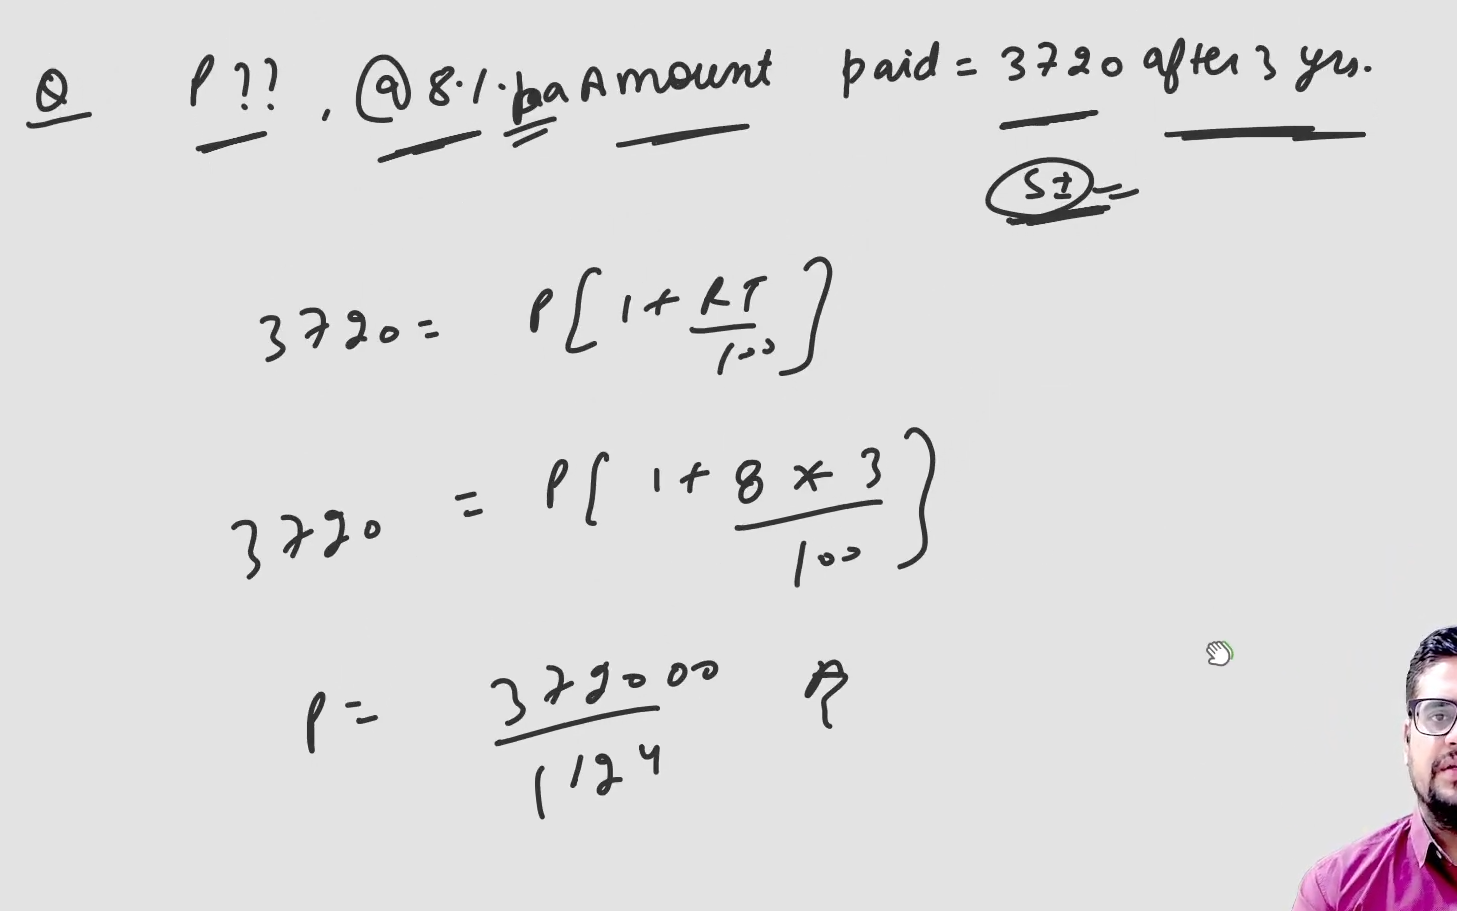 Q P ?? , @ 8.1. pa Amount paid = 3720 after 3 yrs.
SI =
3720 = P [ 1 + RT / 100 ]
3720 = P [ 1 + 8 * 3 / 100 ]
P = 372000 / 1124